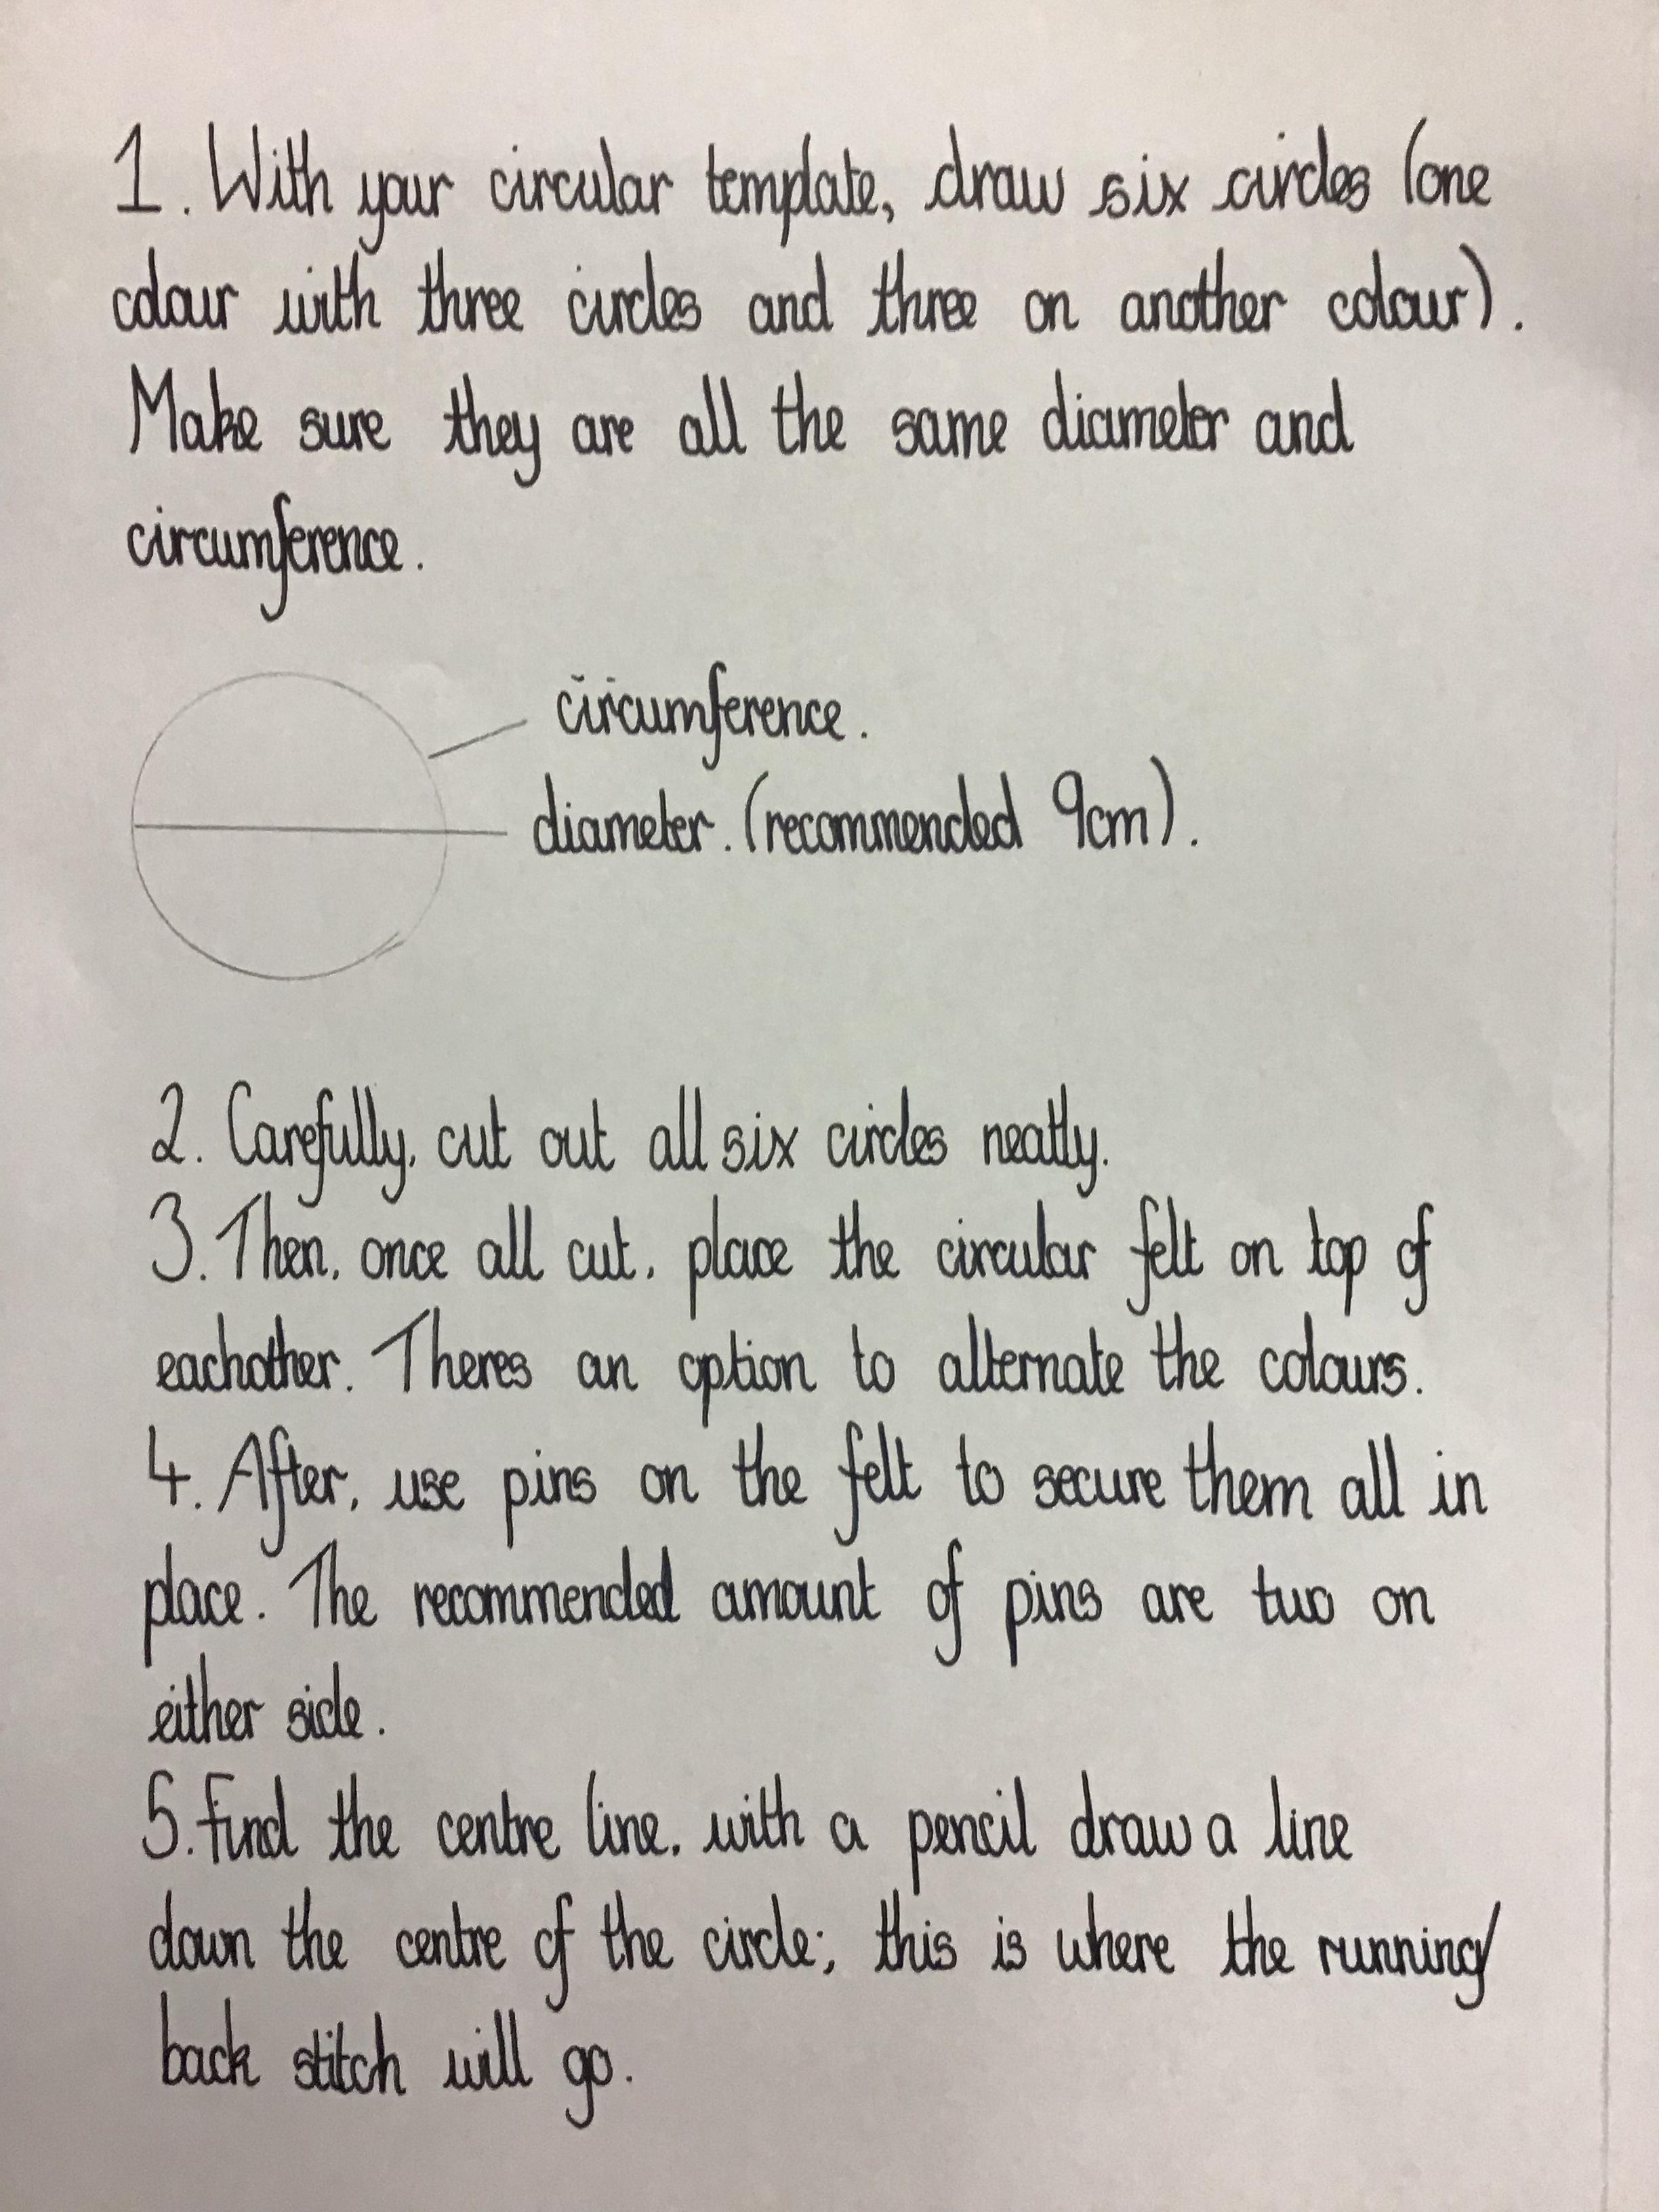 1. With your circular template, draw six circles (one
colour with three circles and three on another colour).
Make sure they are all the same diameter and
circumference.
circumference.
diameter. (recommended 9cm).
2. Carefully, cut out all six circles neatly.
3. Then, once all cut, place the circular felt on top of
eachother. Theres an option to alternate the colours.
4. After, use pins on the felt to secure them all in
place. The recommended amount of pins are two on
either side.
5. find the centre line, with a pencil draw a line
down the centre of the circle; this is where the running/
back stitch will go.